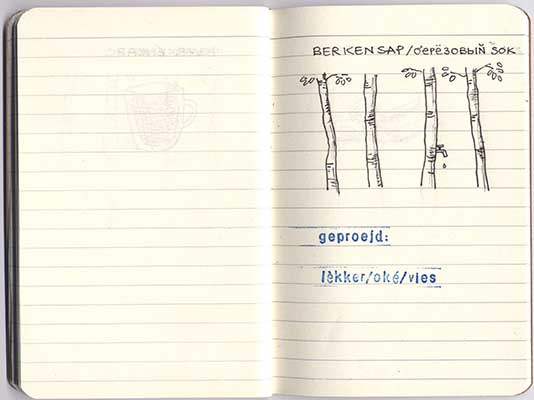 BERKENSAP/берёзовый SOK
geproejd:
lèkker/oké/vies